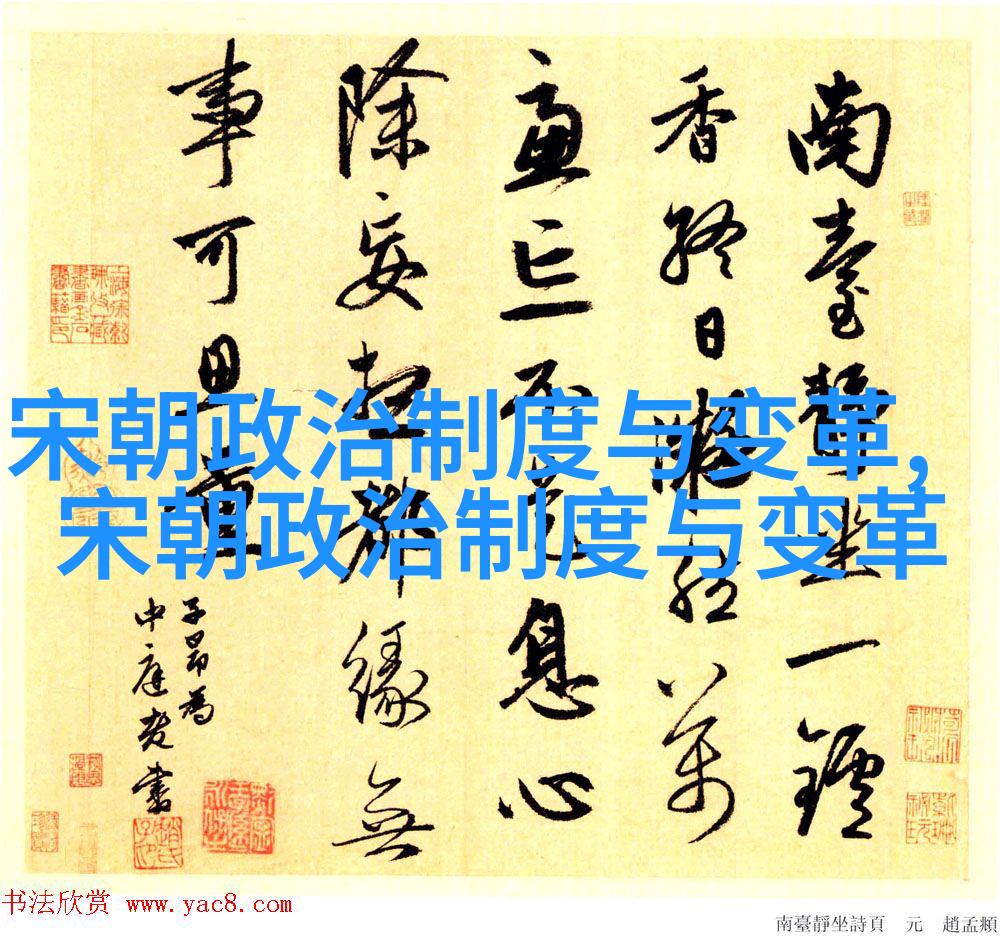 南臺靜坐一鑪
香終日凝然萬
慮亡不是息心
除妄想都緣無
事可思量
子昂為
中庭老書
宋朝政治制度与变革,
宋朝政治制度与变革
书法欣赏 www.yac8.com
南臺靜坐詩頁 元 趙孟頫